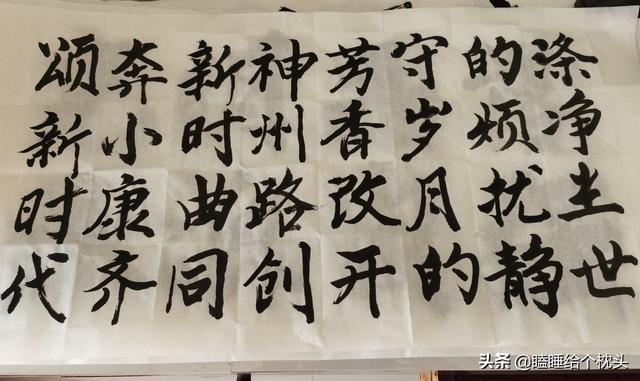 涤净尘世
的烦扰静
守岁月的
芳香改开
神州路创
新时曲同
奔小康齐
颂新时代
头条 @瞌睡给个枕头